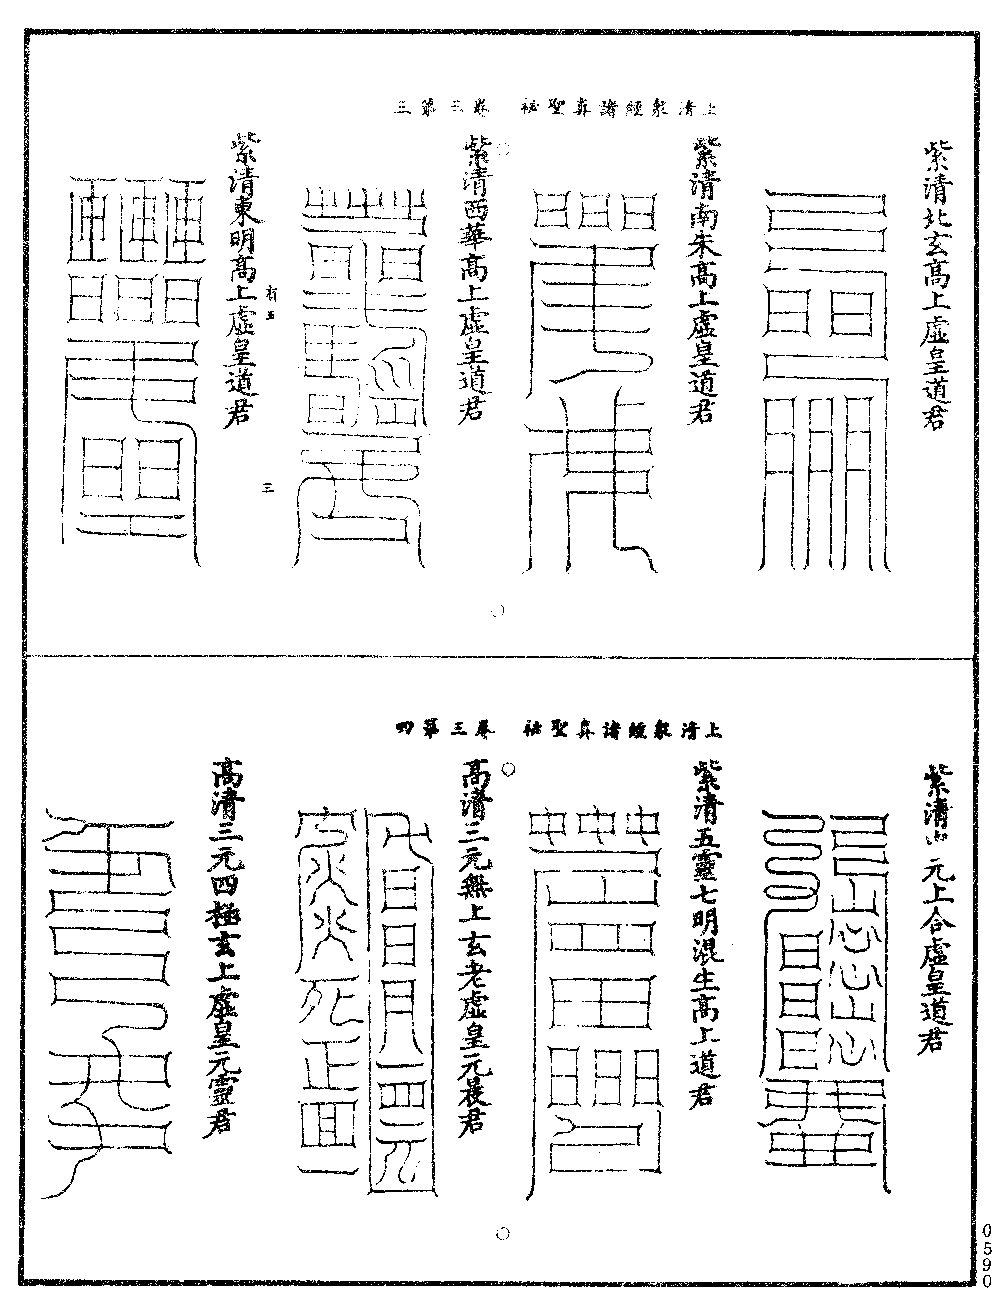 上清衆經諸眞聖祕　卷三第三
紫清北玄高上虛皇道君
紫清南朱高上虛皇道君
紫清西華高上虛皇道君
紫清東明高上虛皇道君
三
上清衆經諸眞聖祕　卷三第四
紫清六元上合虛皇道君
紫清五靈七明混生高上道君
高清三元無上玄老虛皇元晨君
高清三元四極玄上虛皇元靈君
0590